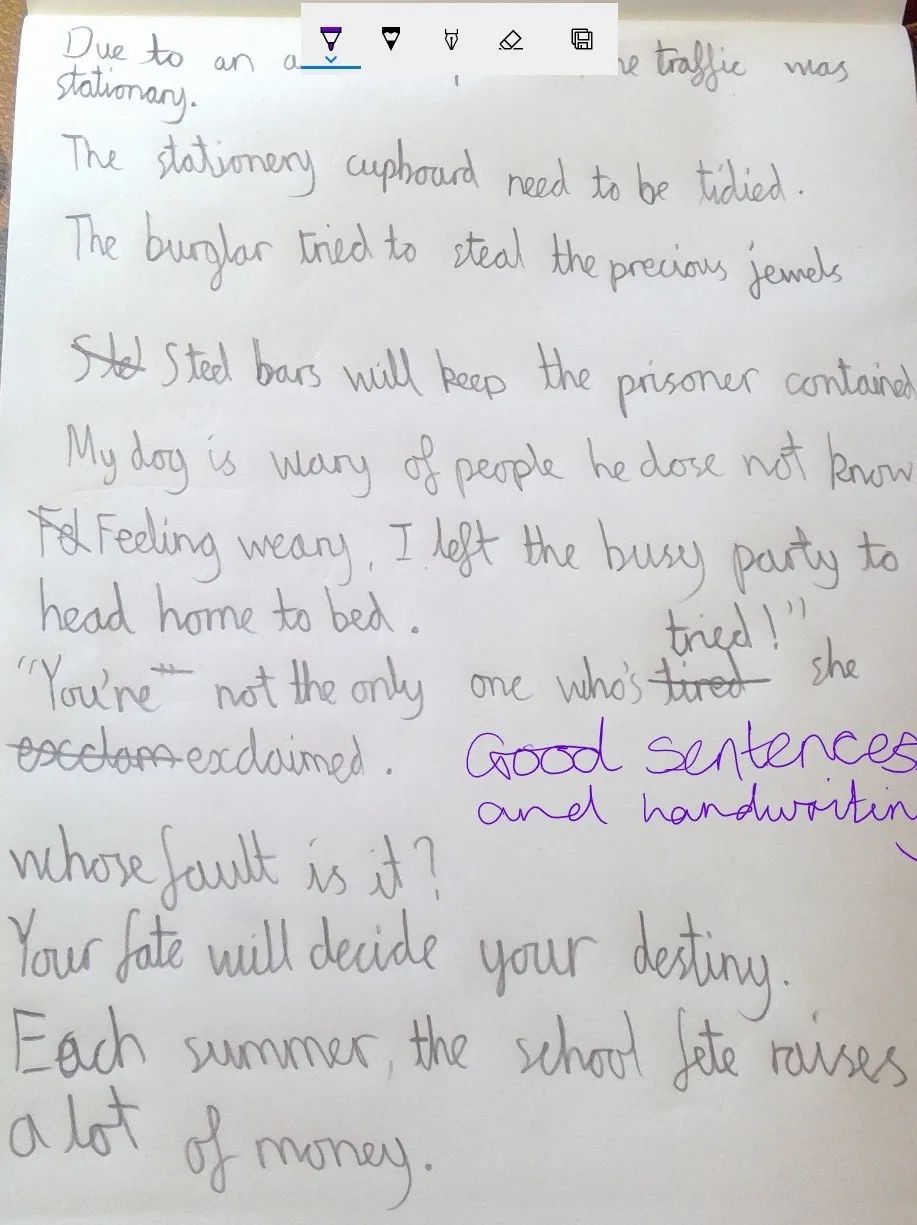 Due to an traffic was
stationary.
The stationery cupboard need to be tidied.
The burglar tried to steal the precious jewels
Steel bars will keep the prisoner contained
My dog is wary of people he dose not know
Feeling weary, I left the busy party to
head home to bed.
tried!"
"You're not the only one who's tired she
exclam exclaimed.
Good sentences
and handwritin
whose fault is it?
Your fate will decide your destiny.
Each summer, the school fete raises
a lot of money.